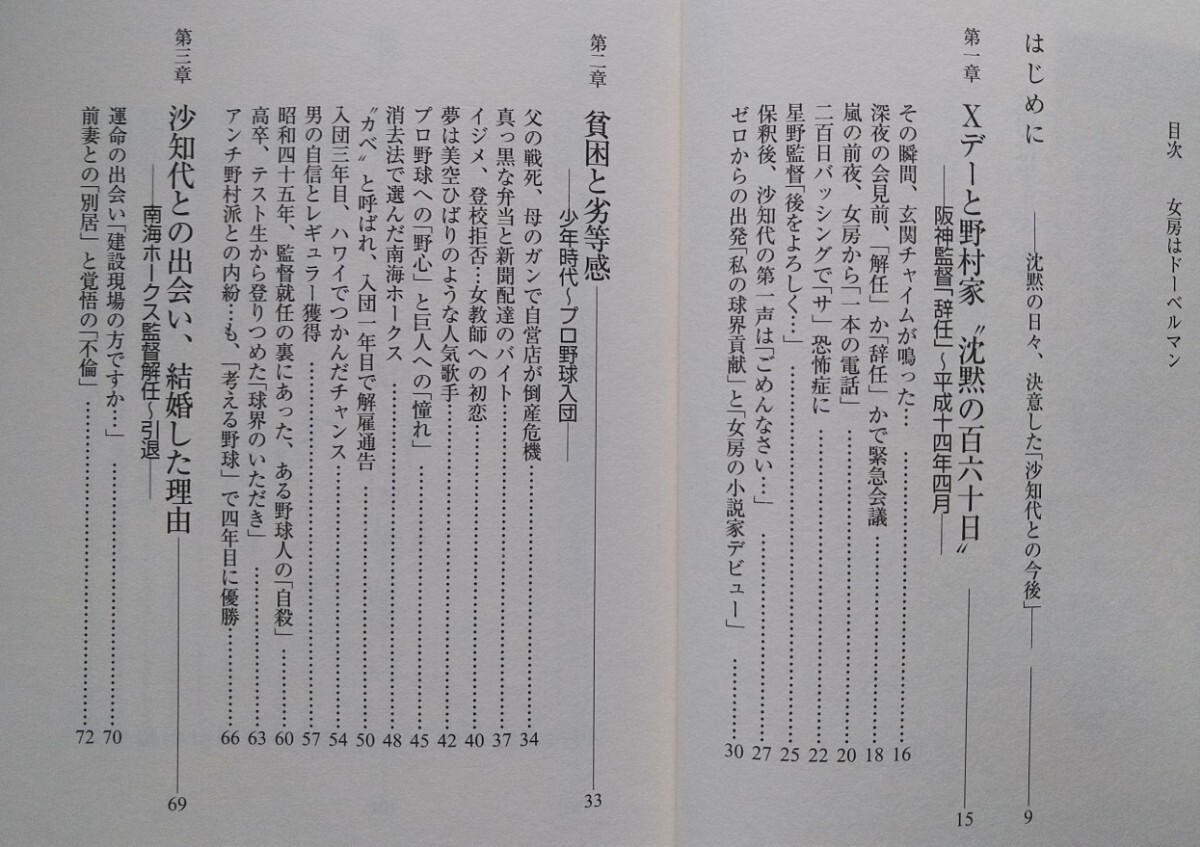 目次　女房はドーベルマン
はじめに　――沈黙の日々、決意した「沙知代との今後」―― 9
第一章　Xデーと野村家〝沈黙の百六十日〟 15
――阪神監督「辞任」～平成十四年四月――
その瞬間、玄関チャイムが鳴った…………16
深夜の会見前、「解任」か「辞任」かで緊急会議…………18
嵐の前夜、女房から「一本の電話」…………20
二百日バッシングで「サ」恐怖症に…………22
星野監督「後をよろしく…」…………25
保釈後、沙知代の第一声は「ごめんなさい…」…………27
ゼロからの出発「私の球界貢献」と「女房の小説家デビュー」…………30
第二章　貧困と劣等感 33
――少年時代～プロ野球入団――
父の戦死、母のガンで自営店が倒産危機…………34
真っ黒な弁当と新聞配達のバイト…………37
イジメ、登校拒否…女教師への初恋…………40
夢は美空ひばりのような人気歌手…………42
プロ野球への「野心」と巨人への「憧れ」…………45
消去法で選んだ南海ホークス…………48
〝カベ〟と呼ばれ、入団一年目で解雇通告…………50
入団三年目、ハワイでつかんだチャンス…………54
男の自信とレギュラー獲得…………57
昭和四十五年、監督就任の裏にあった、ある野球人の「自殺」…………60
高卒、テスト生から登りつめた「球界のいただき」…………63
アンチ野村派との内紛…も、「考える野球」で四年目に優勝…………66
第三章　沙知代との出会い、結婚した理由 69
――南海ホークス監督解任～引退――
運命の出会い「建設現場の方ですか…」…………70
前妻との「別居」と覚悟の「不倫」…………72